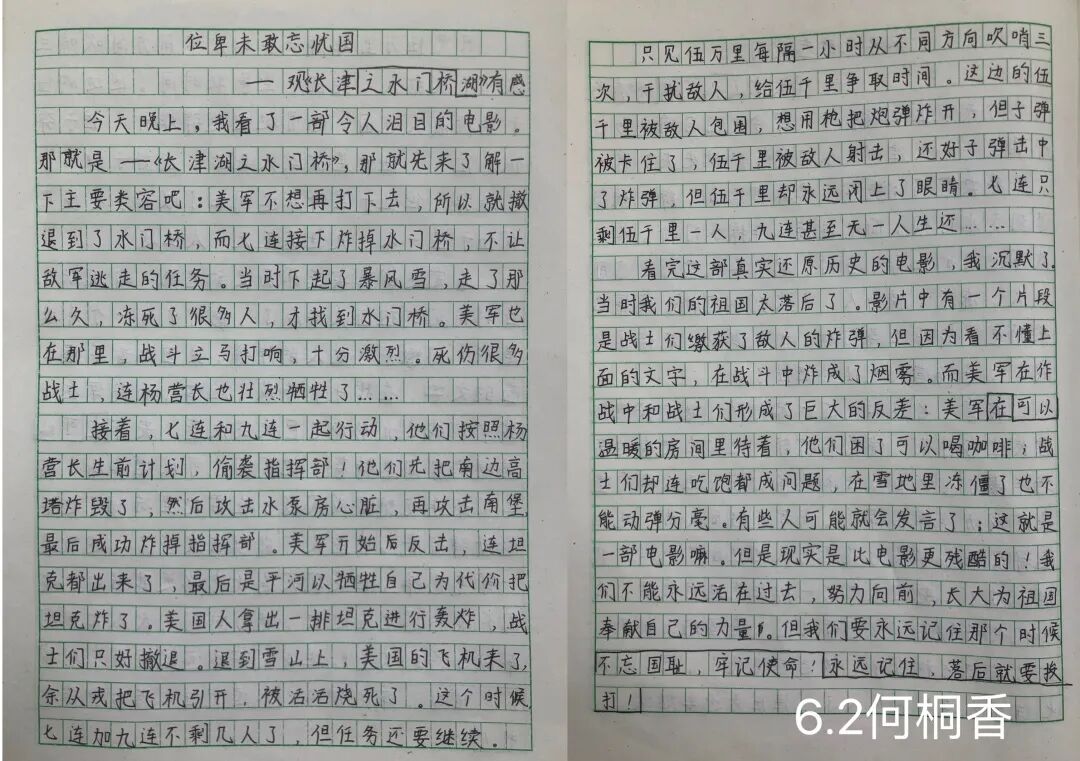 位卑未敢忘忧国
——观《长津之水门桥湖》有感
今天晚上，我看了一部令人泪目的电影。
那就是——《长津湖之水门桥》，那就先来了解一
下主要类容吧：美军不想再打下去，所以就撤
退到了水门桥，而七连接下炸掉水门桥，不让
敌军逃走的任务。当时下起了暴风雪，走了那
么久，冻死了很多人，才找到水门桥。美军也
在那里，战斗立马打响，十分激烈。死伤很多
战士，连杨营长也壮烈牺牲了……
接着，七连和九连一起行动，他们按照杨
营长生前计划，偷袭指挥部！他们先把南边高
堵炸毁了，然后攻击水泵房心脏，再攻击南堡，
最后成功炸掉指挥部。美军开始后反击，连坦
克都出来了，最后是平河以牺牲自己为代价把
坦克炸了。美国人拿出一排坦克进行轰炸，战
士们只好撤退。退到雪山上，美国的飞机来了，
余从戎把飞机引开，被活活烧死了。这个时候
七连加九连不剩几人了，但任务还要继续。
只见伍万里每隔一小时从不同方向吹哨三
次，干扰敌人，给伍千里争取时间。这边的伍
千里被敌人包围，想用枪把炮弹炸开，但子弹
被卡住了，伍千里被敌人射击，还好子弹击中
了炸弹，但伍千里却永远闭上了眼睛。七连只
剩伍千里一人，九连甚至无一人生还……
看完这部真实还原历史的电影，我沉默了。
当时我们的祖国太落后了。影片中有一个片段
是战士们缴获了敌人的炸弹，但因为看不懂上
面的文字，在战斗中炸成了烟雾。而美军在作
战中和战士们形成了巨大的反差：美军在可以
温暖的房间里待着，他们困了可以喝咖啡；战
士们却连吃饱都成问题，在雪地里冻僵了也不
能动弹分毫。有些人可能就会发言了；这就是
一部电影嘛。但是现实是比电影更残酷的！我
们不能永远活在过去，努力向前，长大为祖国
奉献自己的力量。但我们要永远记住那个时候
不忘国耻，牢记使命！永远记住，落后就要挨
打！
6.2何桐香